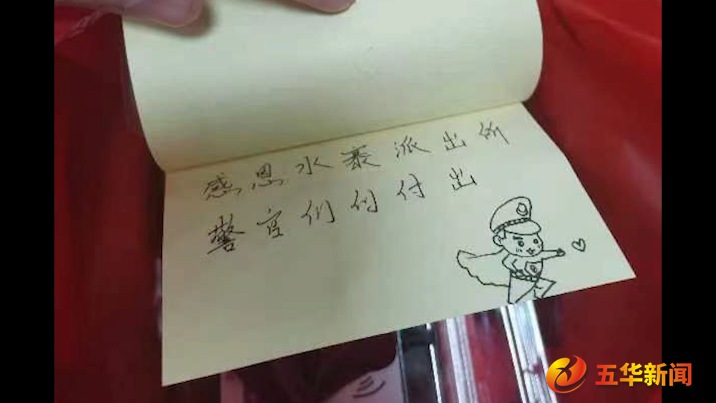 感恩水寨派出所
警官们的付出
五华新闻